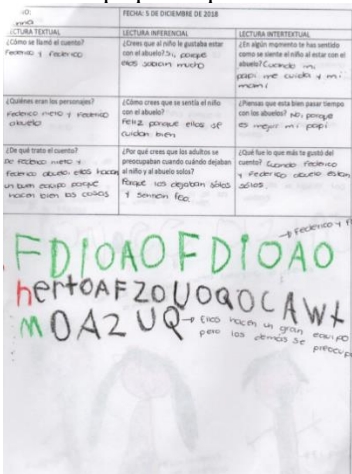 FECHA: 5 DE DICIEMBRE DE 2018
LECTURA TEXTUAL
LECTURA INFERENCIAL
LECTURA INTERTEXTUAL
¿Cómo se llamó el cuento?
Federico y Federico
¿Crees que al niño le gustaba estar con el abuelo? Si, porque
ellos sabían mucho
¿En algún momento te has sentido
como se siente el niño al estar con el
abuelo? Cuando mi
papi me cuida y mi
mami
¿Quiénes eran los personajes?
Federico nieto y Federico
abuelo
¿Cómo crees que se sentía el niño
con el abuelo?
Feliz porque ellos se
cuidan bien
¿Piensas que esta bien pasar tiempo
con los abuelos? No, porque
es mejor mi papi
¿De qué trato el cuento?
De Federico nieto y
Federico abuelo, ellos hacen
un buen equipo porque
hacen bien las cosas
¿Por qué crees que los adultos se
preocupaban cuando cuándo dejaban
al niño y al abuelo solos?
Porque los dejaban solos
y sentían feo
¿Qué fue lo que más te gustó del
cuento? Cuando Federico
y Federico abuelo están
solos
Federico y F
FDIOAOFDIOAO
hertOAFZOUOQOCAWt
MOAZUQ
Ellos hacen un gran equipo
pero los demás se preocup